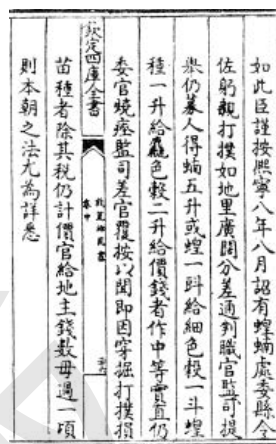 如此臣謹按熙寧八年八月詔有蝗蝻處委縣令
佐躬親打撲如地里廣闊分差通判職官監司提
舉仍募人得蝻五升或蝗一㪷給細色穀一斗蝗
種一升給麤色穀二升給價錢者作中等實直仍
委官燒瘞監司差官覆按以聞即因穿掘打撲損
欽定四庫全書
救荒活民書
卷中
苗種者除其稅仍計價官給地主錢數毋過一頃
則本朝之法尤為詳悉